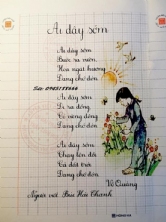 Ai dậy sớm
Ai dậy sớm
Bước ra vườn,
Hoa ngát hương
Đang chờ đón.
Ai dậy sớm
Đi ra đồng
Có vừng đông
Đang chờ đón.
Ai dậy sớm
Chạy lên đồi
Cả đất trời
Đang chờ đón.
Võ Quảng
Người viết: Bùi Hải Thanh